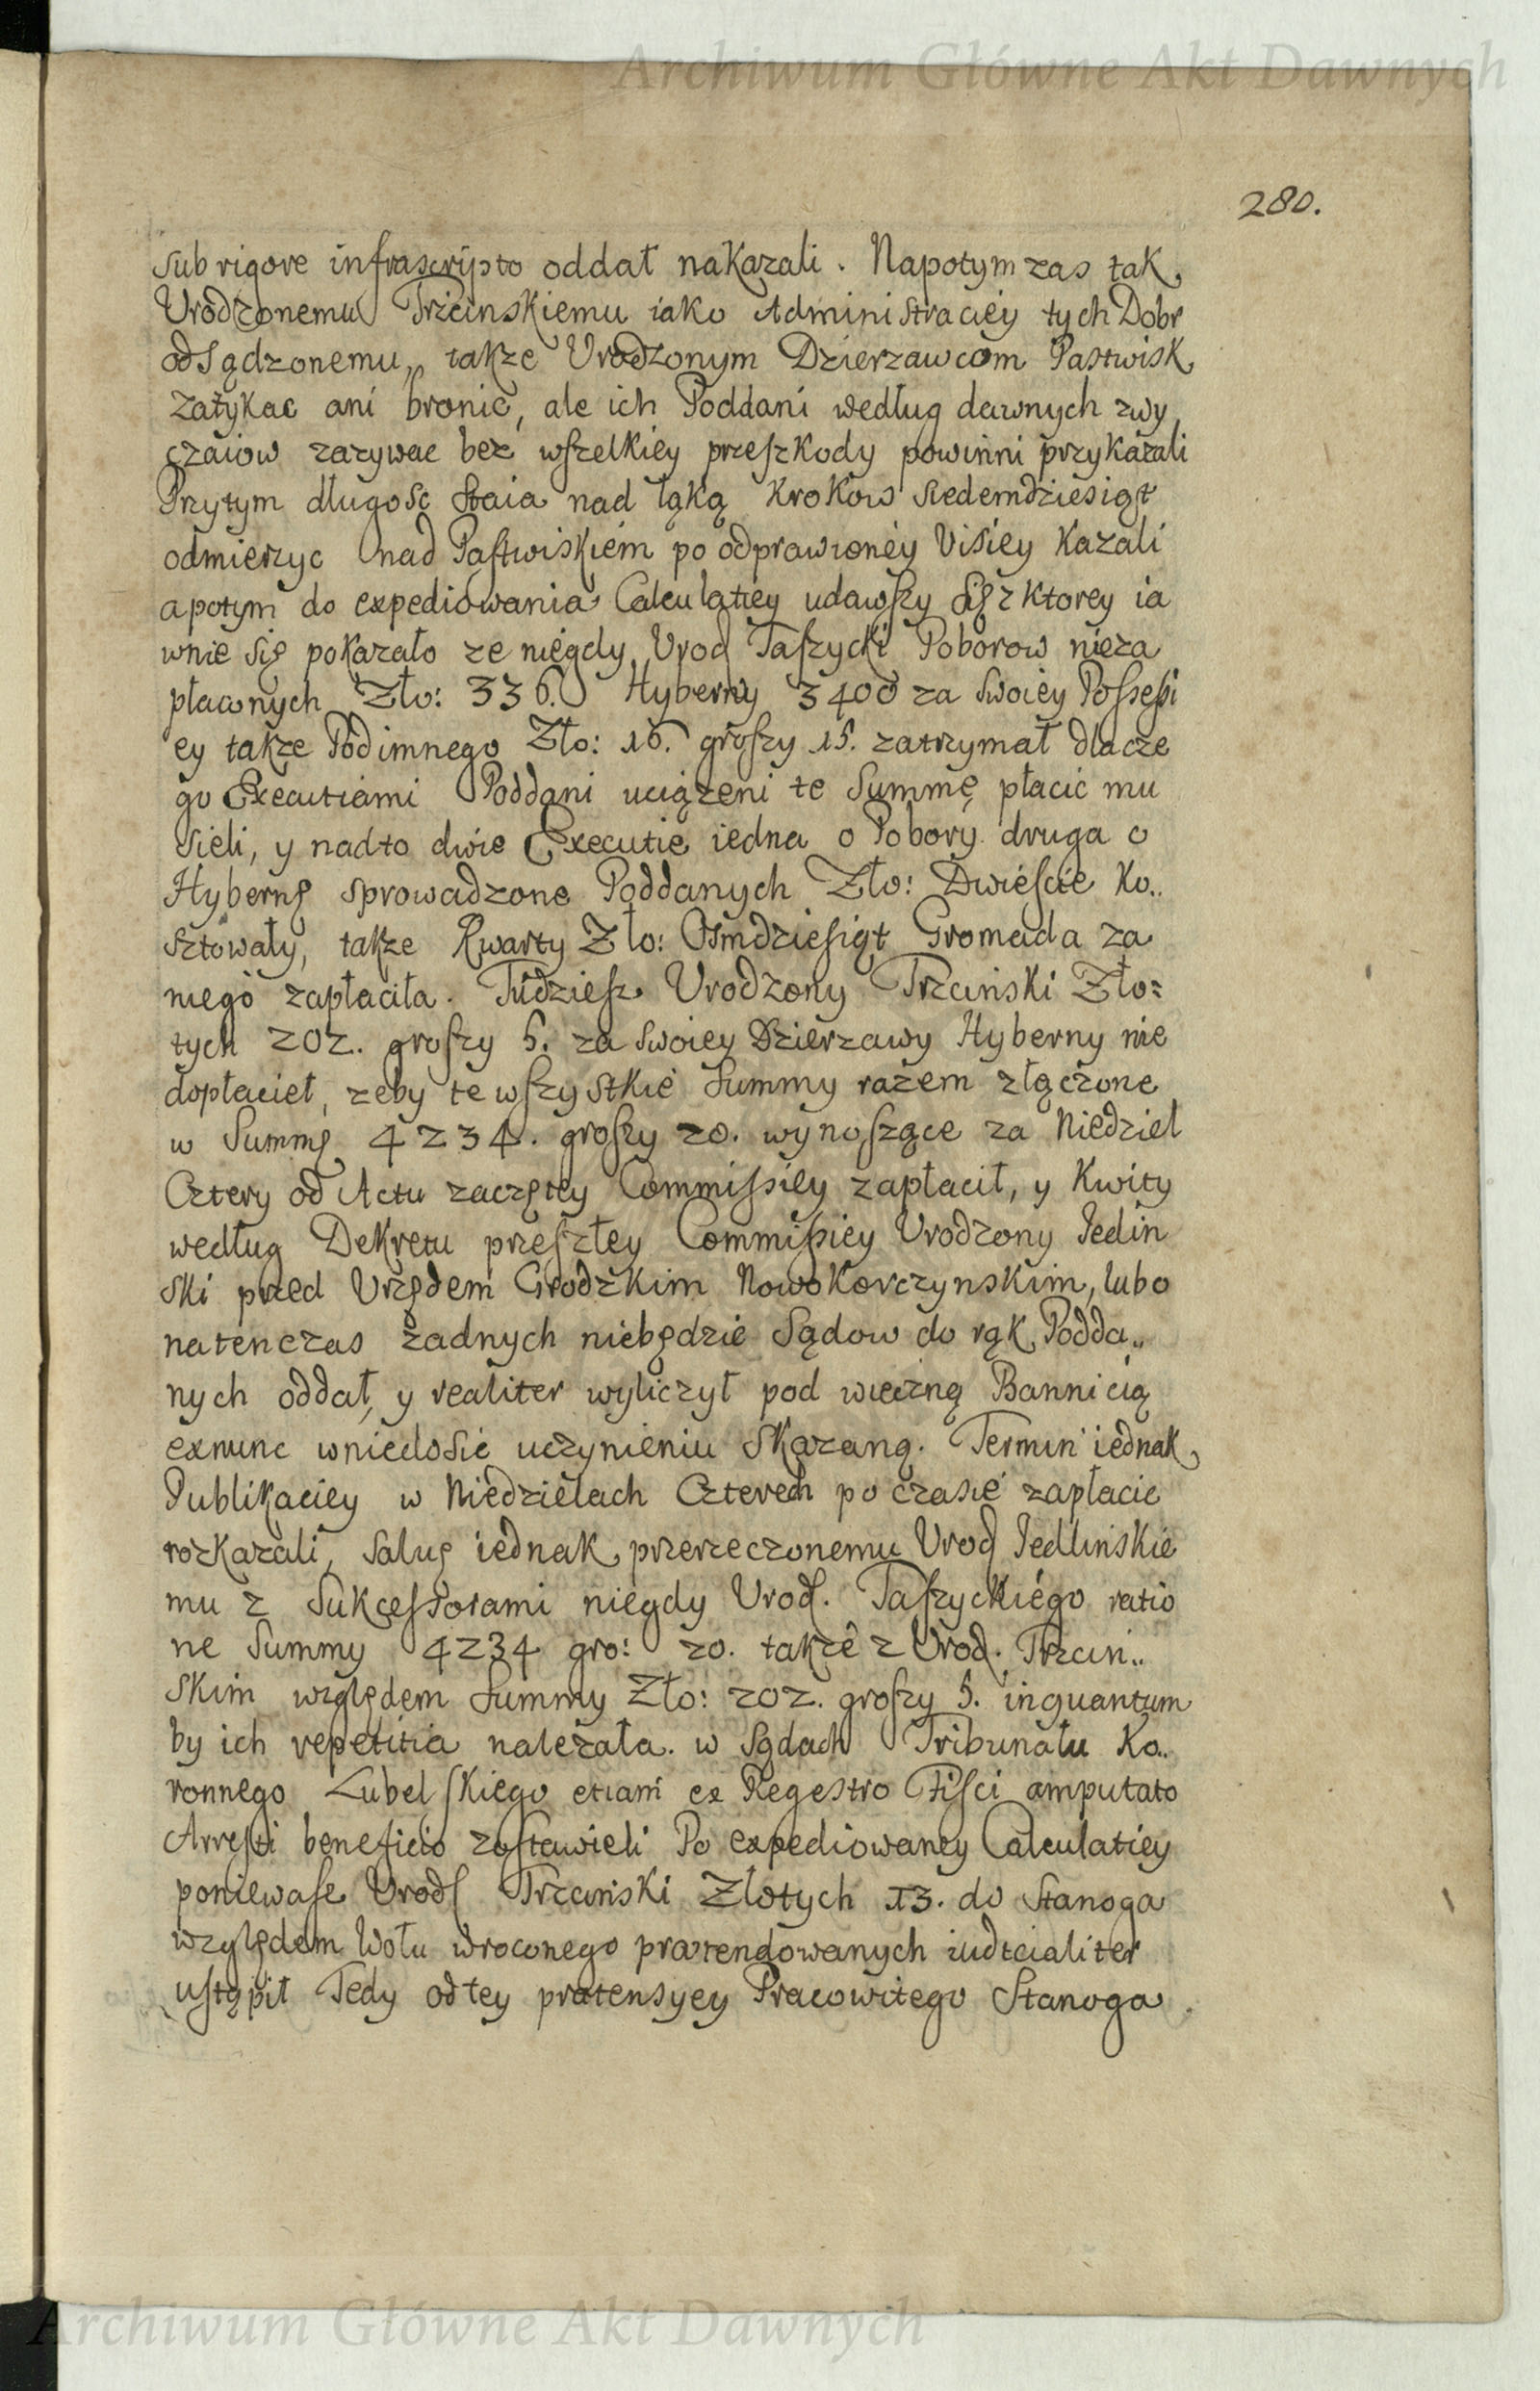 Archiwum Główne Akt Dawnych
280.
sub rigore infrascripto oddał nakazali. Napotym zas tak
Urodzonemu Trzcinskiemu iako Administraciey tych Dobr
odsądzonemu, takze Urodzonym Dzierzawcom Pastwisk
zatykac ani bronic, ale ich Poddani według dawnych zwy
czaiow zazywac bez wszelkiey przeszkody powinni przykazali
Przytym długosc staia nad łąką Krokow siedemdziesiąt
odmierzyc nad Pastwiskiem po odprawioney Visiey kazali
apotym do expediowania Calculatiey udawszy się z ktorey ia
wnie się pokazało ze niegdy Urod Taszycki Poborow nieza
płaconych Zło: 336. Hyberny 3400 za swoiey Possessi
ey takze Podimnego Zło: 16. groszy 15. zatrzymał dlacze
go Executiami Poddani uciązeni te Summę płacic mu
sieli, y nadto dwie Executie iedna o Pobory druga o
Hybernę sprowadzone Poddanych Zło: Dwiescie ko..
sztowały, takze Kwarty Zło: Osmdziesiąt Gromada za
niego zapłaciła. Tudziesz Urodzony Trzcinski Zło=
tych 202. groszy 5. za swoiey Dzierzawy Hyberny nie
dopłacieł, zeby te wszystkie Summy razem złączone
w Summę 4234. groszy 20. wynoszące za Niedziel
Cztery od Actu zaczętey Commissiey zapłacił, y Kwity
według Dekretu przeszłey Commissiey Urodzony Jedlin
ski przed Urzędem Grodzkim NowoKorczynskim, lubo
natenczas zadnych niebędzie Sądow do rąk Podda..
nych oddał, y realiter wyliczył pod wieczną Bannicią
exnunc wniedosic uczynieniu skazaną. Termin iednak
Publikaciey w Niedzielach Czterech po czasie zapłacic
rozkazali, salug iednak przerzeczonemu Urod Jedlinskie
mu z Sukcessorami niegdy Urod. Taszyckiego ratio
ne Summy 4234 gro: 20. takze z Urod. Trzcin..
skim względem Summy Zło: 202. groszy 5. inquantum
by ich repetitia nalezała. w Sądach Tribunału Ko..
ronnego Lubelskiego etiam ex Regestro Fisci amputato
Arresti beneficio zostawieli Po expediowaney Calculatiey
poniewasz Urod Trzcinski Złotych 13. do Stanoga
względem Wołu wroconego praetendowanych iudicialiter
ustąpił Tedy od tey pratensyey Pracowitego Stanoga
Archiwum Główne Akt Dawnych